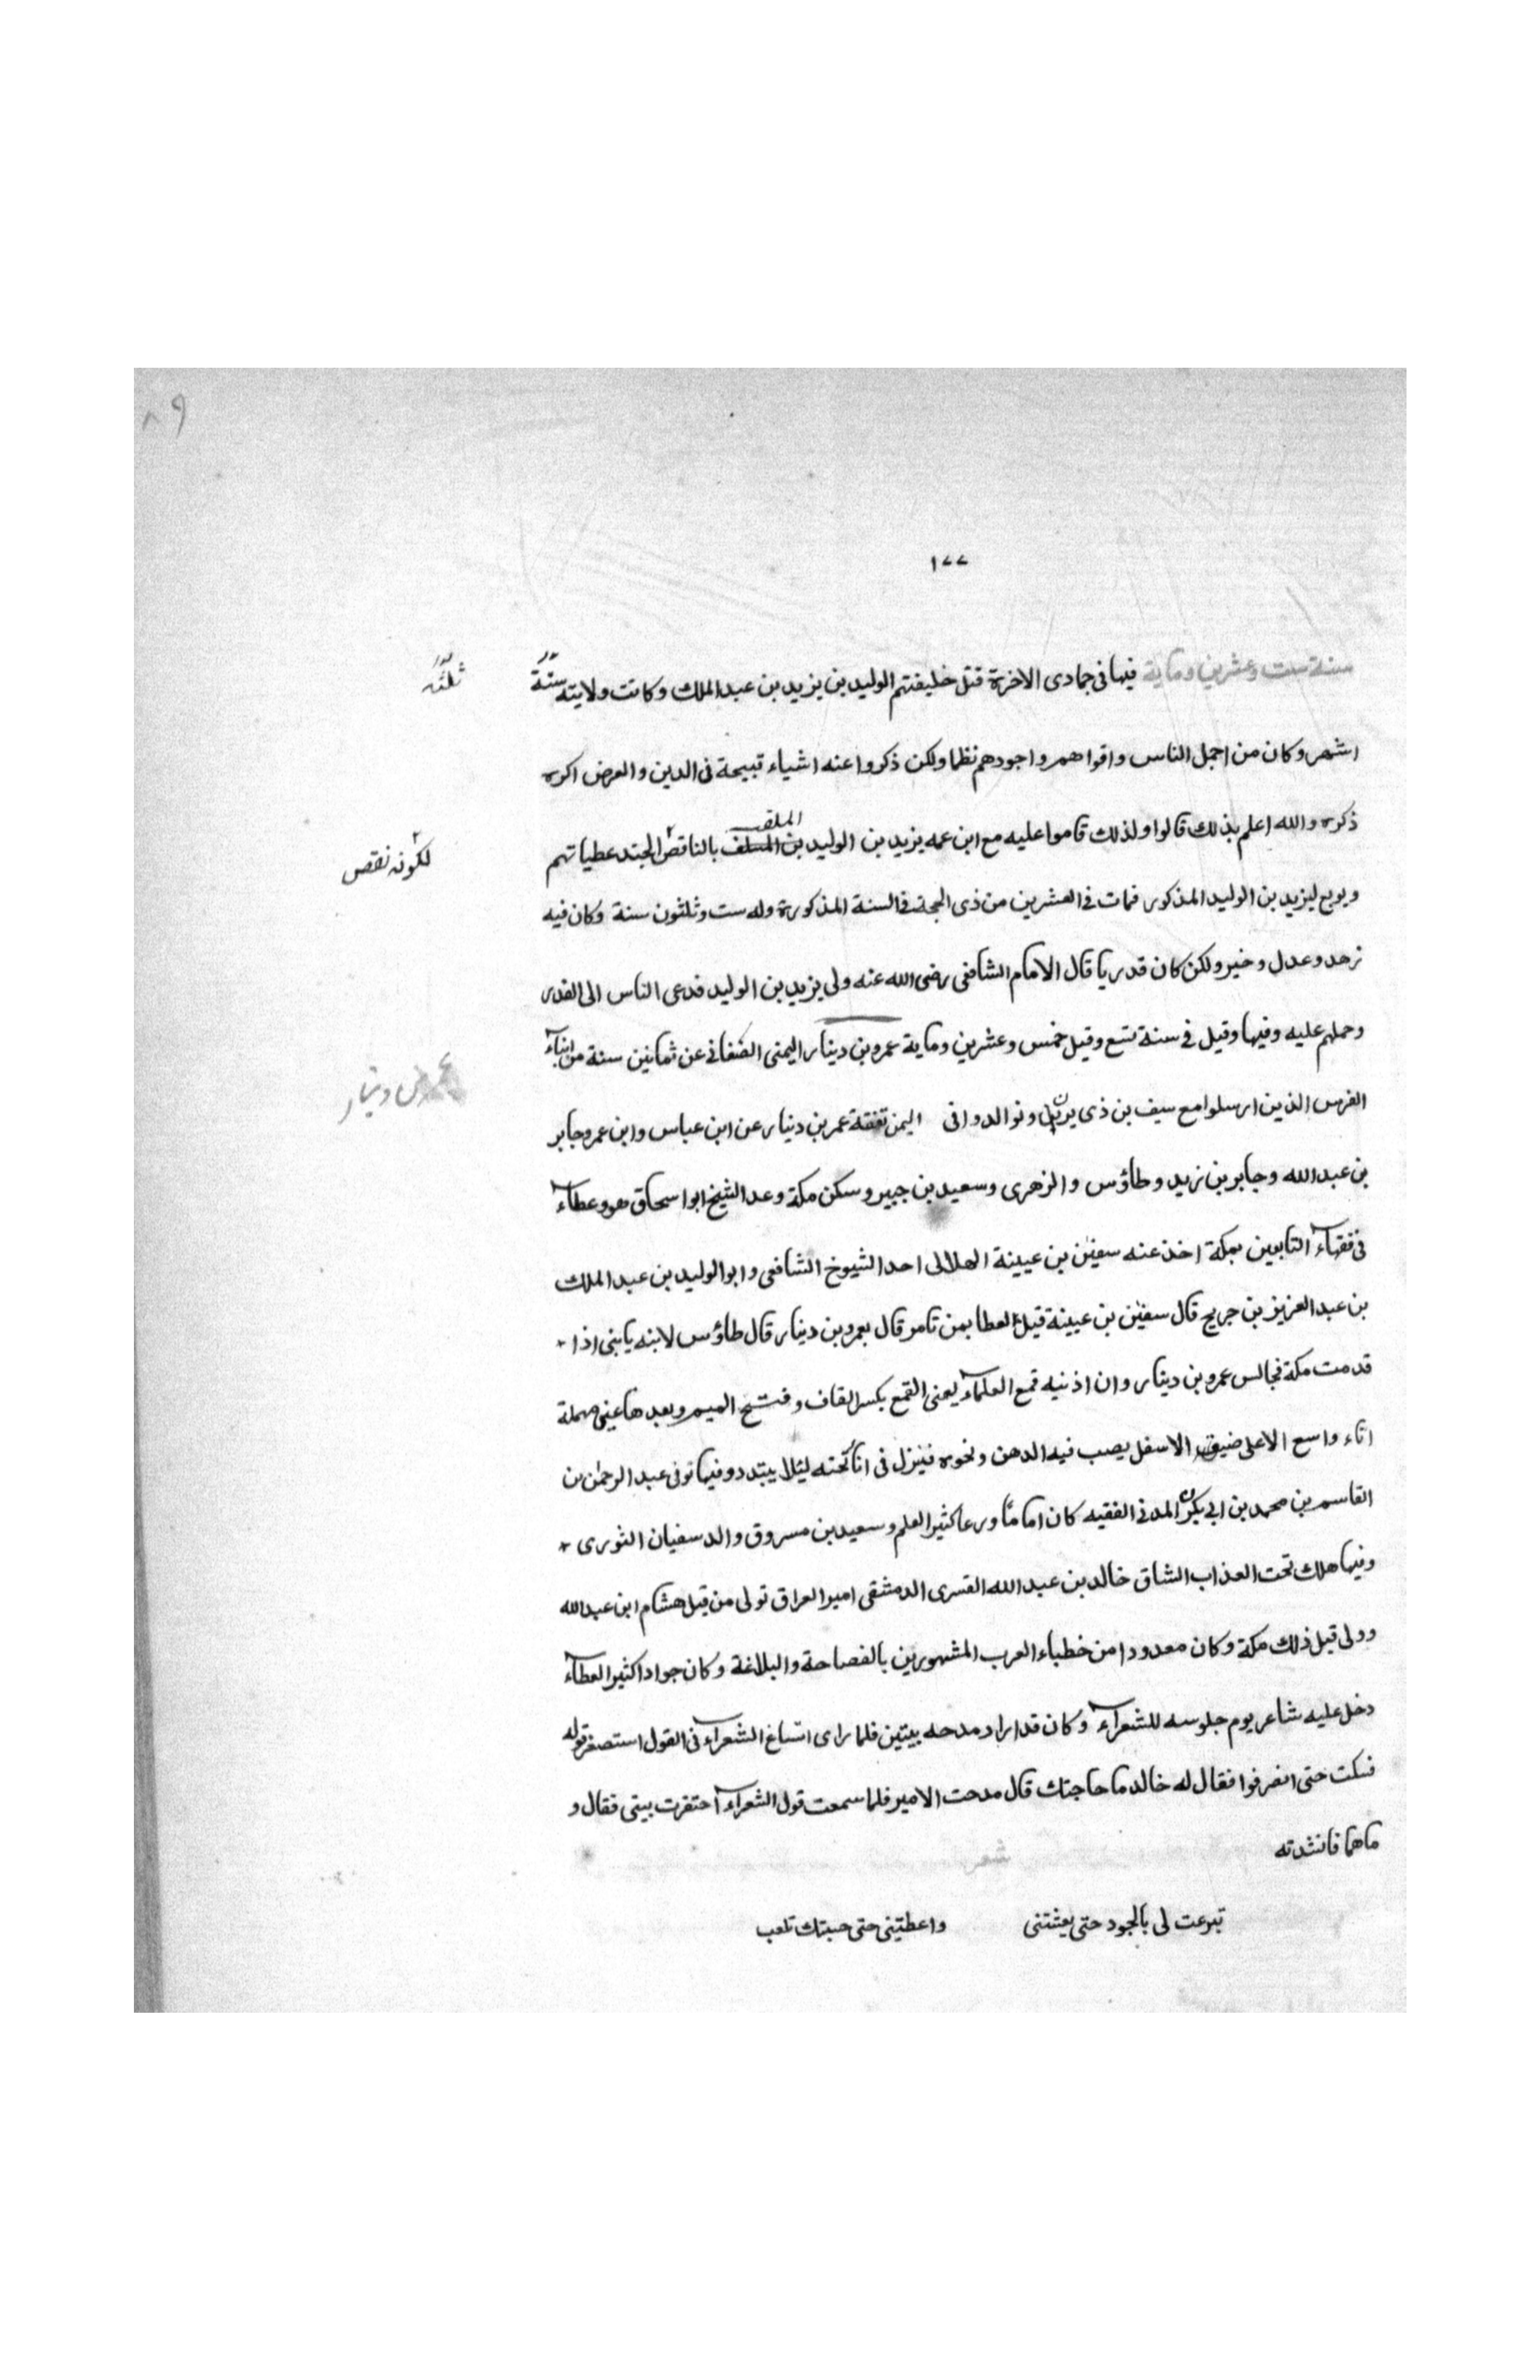 ٨٩
١٧٧
سنة ست وعشرين وماية فيها فى جمادى الاخرة قتل خليفتهم الوليد بن يزيد بن عبد الملك وكانت ولايته سنة
ثلثة
اشهر وكان من اجمل الناس واقواهم واجودهم نظما ولكن ذكروا عنه اشياء قبيحة فى الدين والعرض اكره
ذكره والله اعلم بذلك قالوا ولذلك قاموا عليه مع ابن عمه يزيد بن الوليد الملقب بالناقص الجند عطياتهم
لكونه نقص
وبويع ليزيد بن الوليد المذكور فمات فى العشرين من ذى الحجة فى السنة المذكورة وله ست وثلثون سنة وكان فيه
زهد وعدل وخير ولكن كان قدريا قال الامام الشافعى رضى الله عنه ولى يزيد بن الوليد فدعى الناس الى القدر
وحملهم عليه وفيها وقيل فى سنة تسع وقيل خمس وعشرين وماية عمرو بن دينار اليمنى الصنعانى عن ثمانين سنة من ابناء
عمرو بن دينار
الفرس الذين ارسلوا مع سيف بن ذى يزن وتوالدوا فى اليمن تفقه عمر بن دينار عن ابن عباس وابن عمر وجابر
بن عبد الله وجابر بن زيد وطاؤس والزهرى وسعيد بن جبير وسكن مكة وعد الشيخ ابو اسحاق هو وعطاء
فى فقهاء التابعين بمكة اخذ عنه سفين بن عيينة الهلالى احد الشيوخ الشافعى وابو الوليد بن عبد الملك
بن عبد العزيز بن جريج قال سفين بن عيينة قيل لعطا بمن تامر قال بعمرو بن دينار قال طاؤس لابنه يابنى اذا
قدمت مكة فجالس عمرو بن دينار وان اذنيه قمع العلماء يعنى القمع بكسر القاف وفتح الميم وبعدها عين مهملة
اناء واسع الاعلى ضيق الاسفل يصب فيه الدهن ونحوه فينزل فى انا تحته ليلا يبتدد وفيها توفى عبد الرحمن بن
القاسم بن محمد بن ابى بكر المدنى الفقيه كان اماما ورعا كثير العلم وسعيد بن مسروق والد سفيان الثورى
وفيها هلك تحت العذاب الشاق خالد بن عبد الله القسرى الدمشقى امير العراق تولى من قبل هشام ابن عبد الله
وولى قبل ذلك مكة وكان معدودا من خطباء العرب المشهورين بالفصاحة والبلاغة وكان جوادا كثير العطاء
دخل عليه شاعر يوم جلوسه للشعراء وكان قد اراد مدحه ببيتين فلما راى اتساع الشعراء فى القول استصغر قوله
فسكت حتى انصرفوا فقال له خالد ما حاجتك قال مدحت الامير فلما سمعت قول الشعراء احتقرت بيتى فقال و
ماهما فانشدته
شعر
تبرعت لى بالجود حتى بعثتنى واعطيتنى حتى حسبتك تلعب